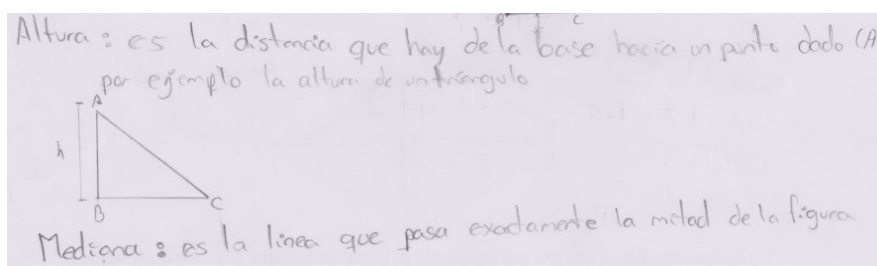 B C
Altura : es la distancia que hay de la base hacia un punto dado (A
por ejemplo la altura de un triangulo
A
h
B C
Mediana : es la linea que pasa exactamente la mitad de la figura